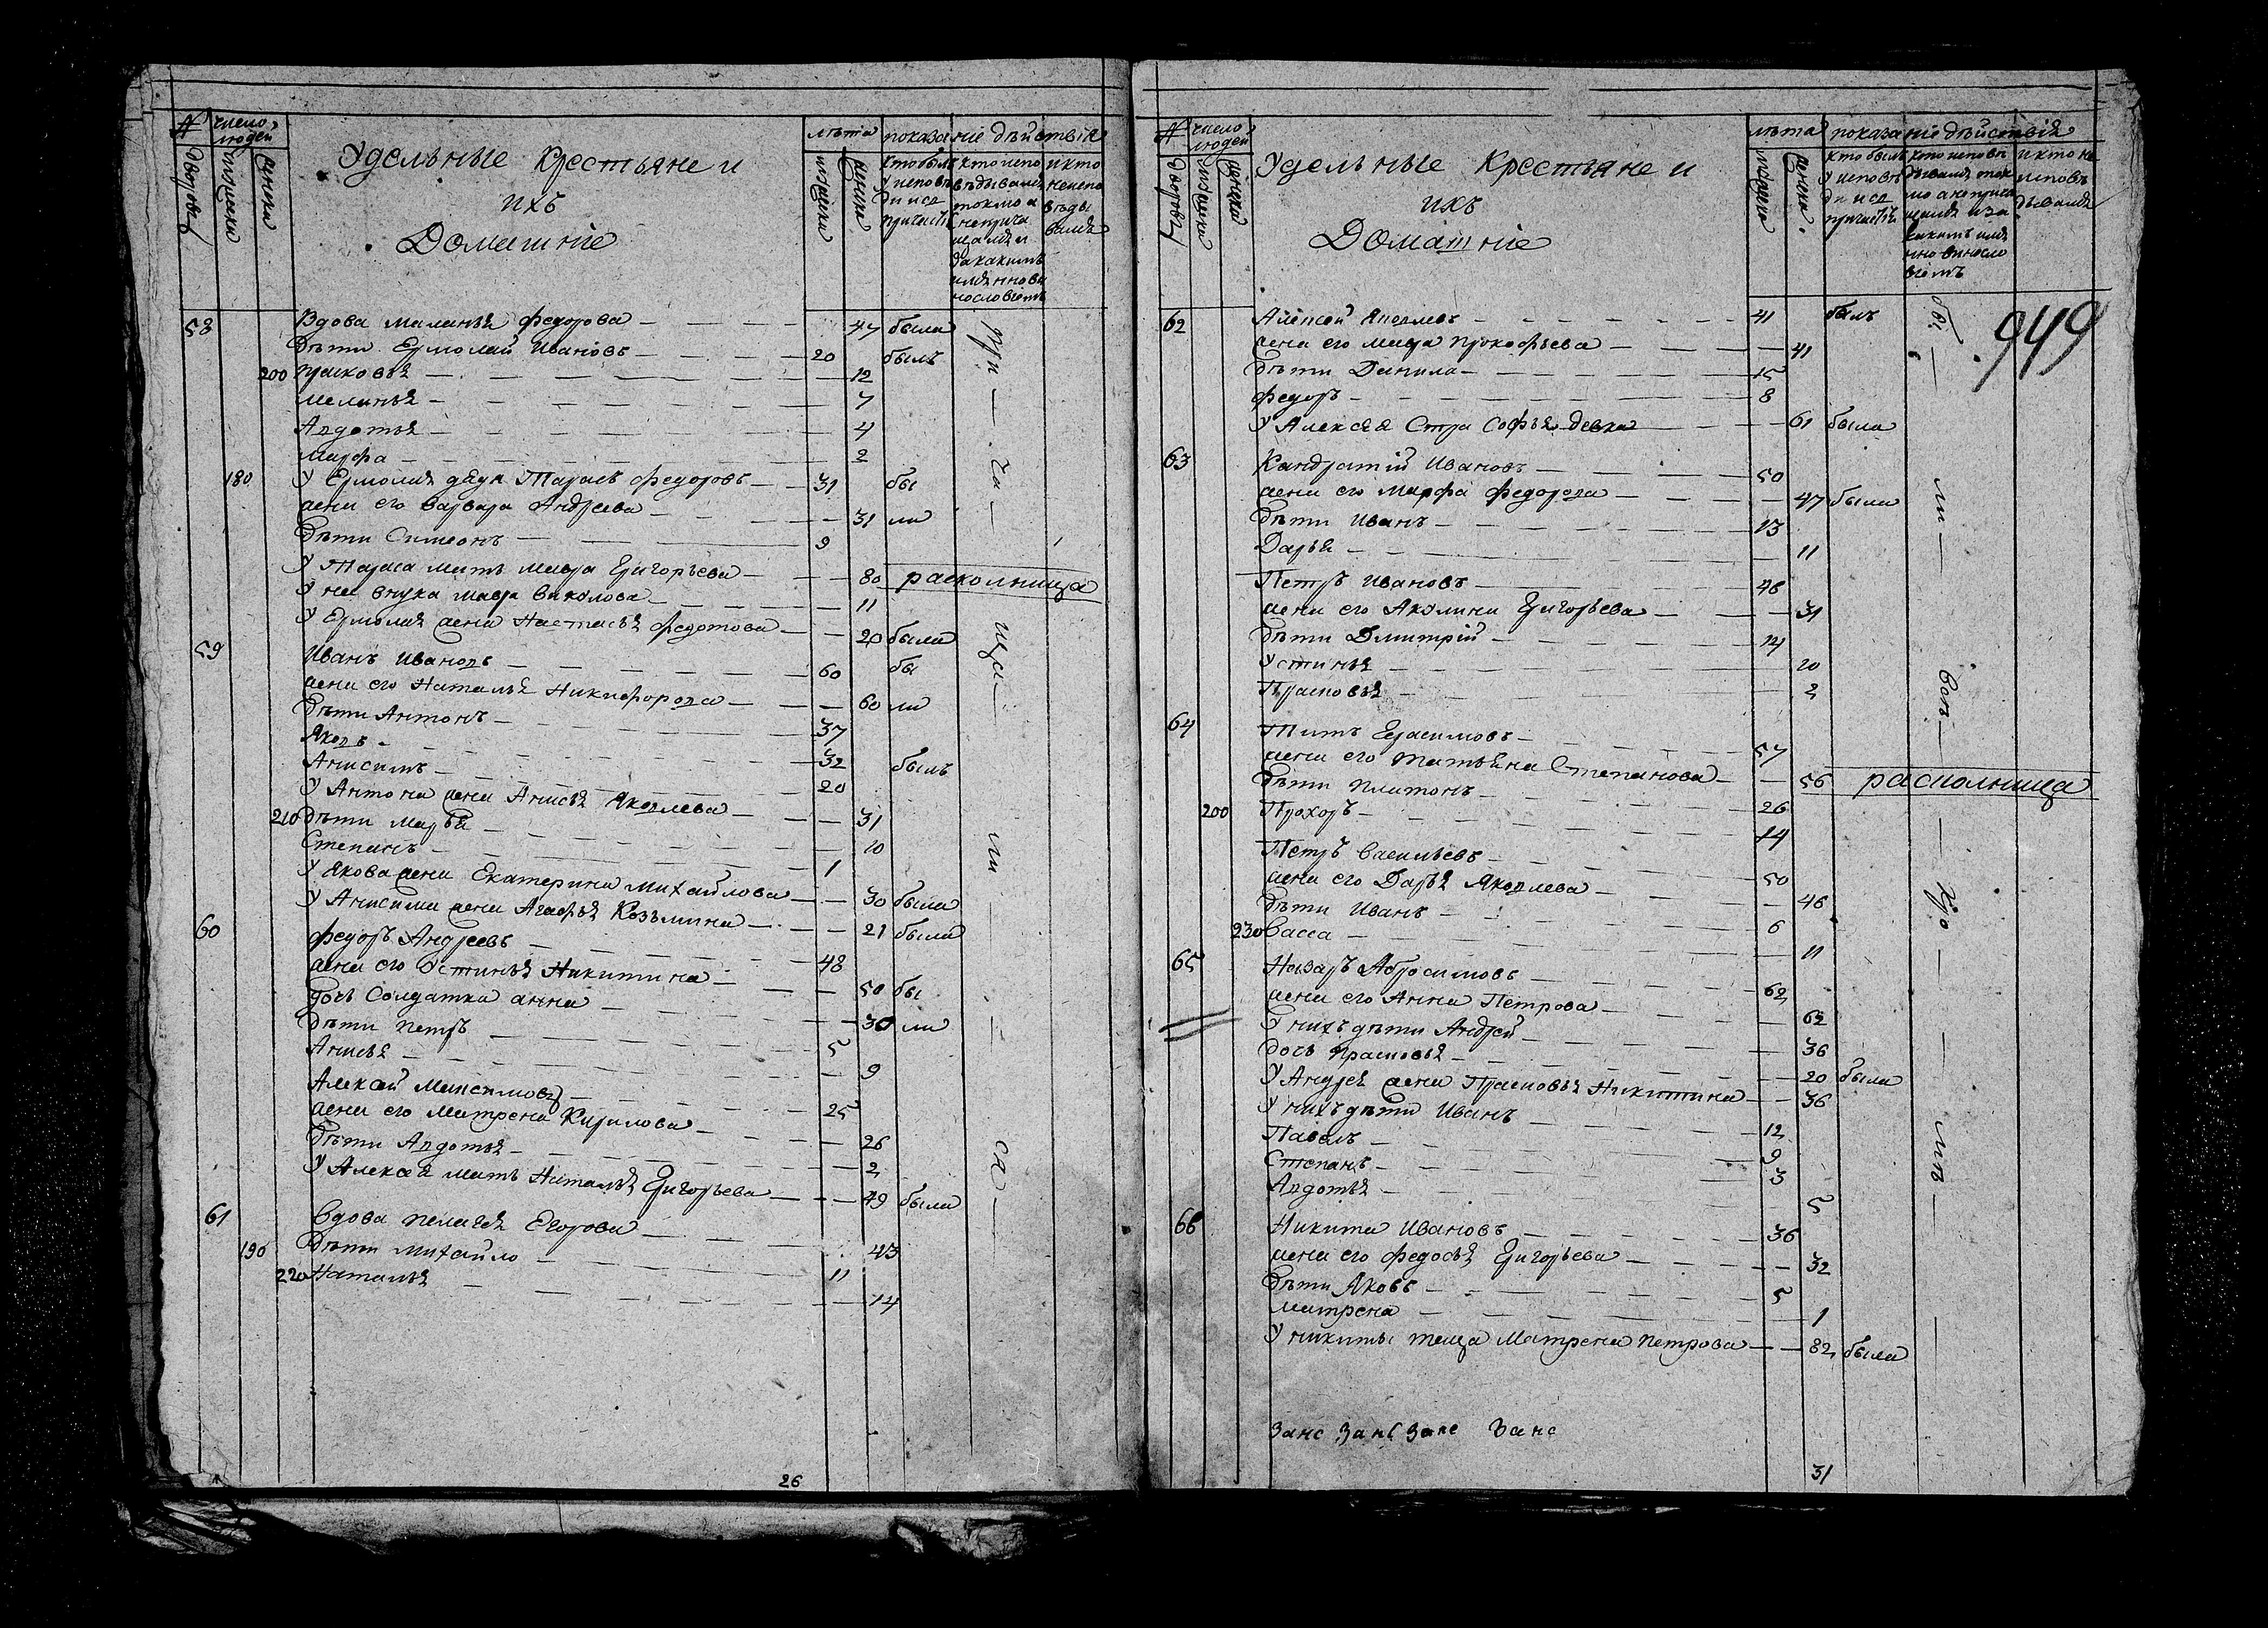 № дворовъ
число людей
мужска
женска
Удельные Крестьяне и
ихъ
Домашніе
лѣта
мужска
женска
показаніе дѣйствія
кто былъ у исповѣди и св причастія
кто исповѣдывался токмо а не причащался и за какимъ имянно винословіемъ
и кто не исповѣдывался
58 Вдова Маланья Федорова 47 была
Дѣти Ермолай Ивановъ 20 былъ
200 Прасковья 12
Меланья 7
Авдотья 4
Марфа 2
180 У Ермолая дядя Тарасъ Федоровъ 31 бы
жена его Варвара Андреева 31 ли
Дѣти Симеонъ 9
У Тараса мать Мавра Григорьева 80 раскольница
У ней внука Мавра Вакулова 11
У Ермолая жена Настасья Федотова 20 была
59 Иванъ Ивановъ 60 бы
жена его Наталья Никифорова 60 ли
Дѣти Антонъ 37
Яковъ 32 былъ
Анисимъ 20
У Антона жена Анисья Яковлева 31
210 Дѣти Марья 10
Степанъ 1
У Якова жена Екатерина Михайлова 30 была
У Анисима жена Агафья Козьмина 21 была
60 Федоръ Андреевъ 48
жена его Устинья Никитина 50 бы
дочь Солдатка Анна 30 ли
Дѣти Петръ 5
Анисья 9
Алексѣй Максимовъ 25
жена его Матрена Кирилова 26
Дѣти Авдотья 2
У Алексѣя мать Наталья Григорьева 49 была
61 Вдова Пелагея Егорова 43
190 Дѣти Михайло 11
220 Наталья 14
при — ча — ща — ли — ся
26
№ дворовъ
число людей
мужска
женска
Удельные Крестьяне и
ихъ
Домашніе
лѣта
мужска
женска
показаніе дѣйствія
кто былъ у исповѣди и св причастія
кто исповѣдывался токмо а не причащался и за какимъ имянно винословіемъ
и кто не исповѣдывался
949
62 Алексѣй Яковлевъ 41 былъ
жена его Мавра Прокофьева 41
Дѣти Данила 15
Федоръ 8
У Алексѣя Стра Софья девка 61 была
63 Кандратій Ивановъ 50
жена его Марфа Федорова 47 была
Дѣти Иванъ 13
Дарья 11
Петръ Ивановъ 46
жена его Акулина Григорьева 31
Дѣти Дмитрій 14
Устинья 10
Прасковья 2
64 Титъ Герасимовъ 57
жена его Татьяна Степанова 56 раскольница
Дѣти Платонъ 26
200 Прохоръ 14
Петръ Васильевъ 50
жена его Дарья Яковлева 46
Дѣти Иванъ 6
230 Васса 11
65 Назаръ Абросимовъ 62
жена его Анна Петрова 62
У нихъ дѣти Андрей 36
дочь Прасковья 20 была
У Андрея жена Прасковья Никитина 36
У нихъ дѣти Иванъ 12
Павелъ 9
Степанъ 3
Авдотья 5
66 Никита Ивановъ 36
жена его Федосья Григорьева 32
Дѣти Яковъ 5
Матрена 1
У Никиты теща Матрена Петрова 82 была
Занс Занс Запс Занс
31